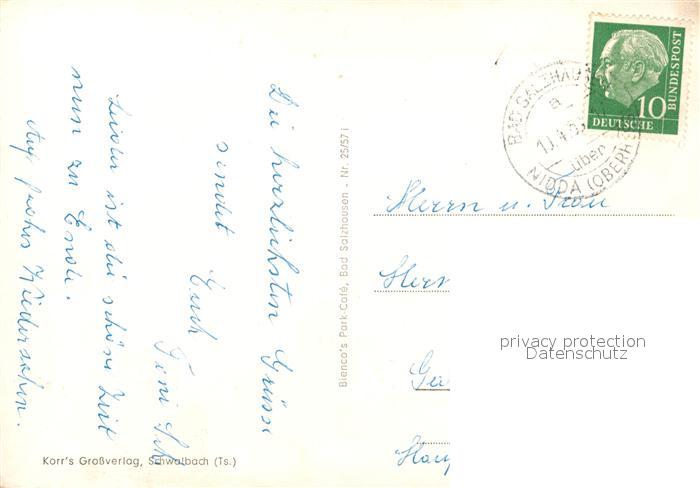 Die herzlichsten Grüsse
sendet Euch
Leider ist die schöne Zeit
nun zu Ende.
Auf frohes Wiedersehen.
Korr's Großverlag, Schwalbach (Ts.)
Bienco's Park-Café, Bad Salzhausen - Nr. 25/57 i
BAD SALZHAUSEN
a
über
NIDDA (OBERH
10
DEUTSCHE
BUNDESPOST
Herrn u. Frau
Her
privacy protection
Datenschutz